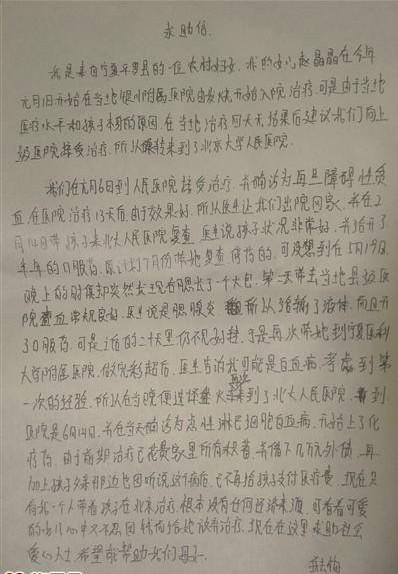 求助信
我是来自宁夏平罗县的一位农村妇女。我的女儿赵晶晶在今年
元月1日开始在当地银川附属医院由发烧开始入院治疗，可是由于当地
医疗水平和孩子本身的原因，在当地治疗四天无结果后建议我们向上
级医院接受治疗，所以转来到了北京大学人民医院。
我们在元月6日到人民医院接受治疗，并确诊为再生障碍性贫
血，在医院治疗13天后由于效果好，所以医生让我们出院回家，并在2
月14日带孩子来北大人民医院复查，医生说孩子状况非常好，并给开了
半年的口服药，原计划7月份带她复查，可没想到在5月19日
晚上的时候却突然发现右腮长了一个大包，第一天带去当地县级医
院查血常规良好，医生说是腮腺炎，所以给输了液体，
口服药，可是
大学附属医院，做完彩超后，医生告诉我可能是白血病，考虑到第
一次的经验，所以在当晚便选择坐火车再次来到了北大人民医院，到
医院是6月14日，并在当天确诊为急性淋巴细胞白血病，开始上了化
疗药，由于前期治疗已花费家里所有积蓄，并借下几万元外债，再
加上孩子父亲那边也因听说这个病后，已不再给孩子支付医疗费，现在只
有我一个人带着孩子在北京治疗，根本没有任何经济来源，可看着可爱
的女儿心中又不忍因钱而给她放弃治疗，现在在这里求助社会
爱心人士，希望能帮助我们母女。